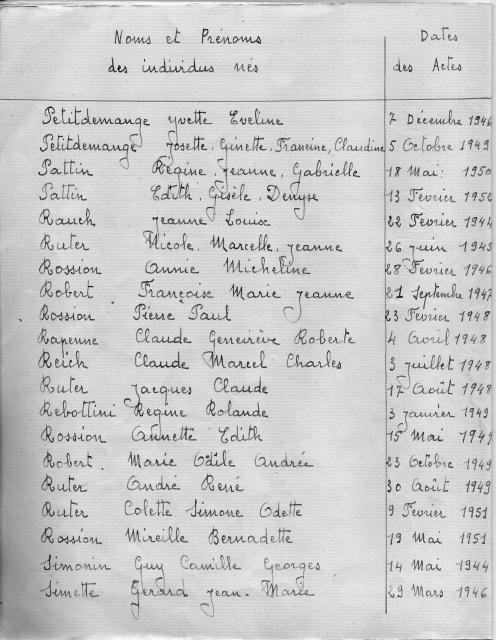 Noms et Prénoms Dates
des individus nés des Actes
Petitdemange Yvette Eveline 7 Décembre 1946
Petitdemange Josette, Ginette, Francine, Claudine 5 Octobre 1949
Pattin Régine, Jeanne, Gabrielle 18 Mai 1950
Pattin Edith, Gisèle, Denyse 13 Fevrier 1952
Rauch Jeanne Louise 22 Février 1944
Ruter Nicole, Marcelle, Jeanne 26 Juin 1945
Rossion Annie Micheline 28 Fevrier 1946
Robert Françoise Marie Jeanne 21 Septembre 1947
Rossion Pierre Paul 23 Février 1948
Rapenne Claude Geneviève Roberte 4 Avril 1948
Reich Claude Marcel Charles 3 juillet 1948
Ruter Jacques Claude 17 Août 1948
Rebottini Régine Rolande 3 janvier 1949
Rossion Annette Edith 15 Mai 1949
Robert Marie Odile Andrée 23 Octobre 1949
Ruter André René 30 Août 1949
Ruter Colette Simone Odette 9 Fevrier 1951
Rossion Mireille Bernadette 19 Mai 1951
Simonin Guy Camille Georges 14 Mai 1944
Simette Gerard Jean-Marie 29 Mars 1946